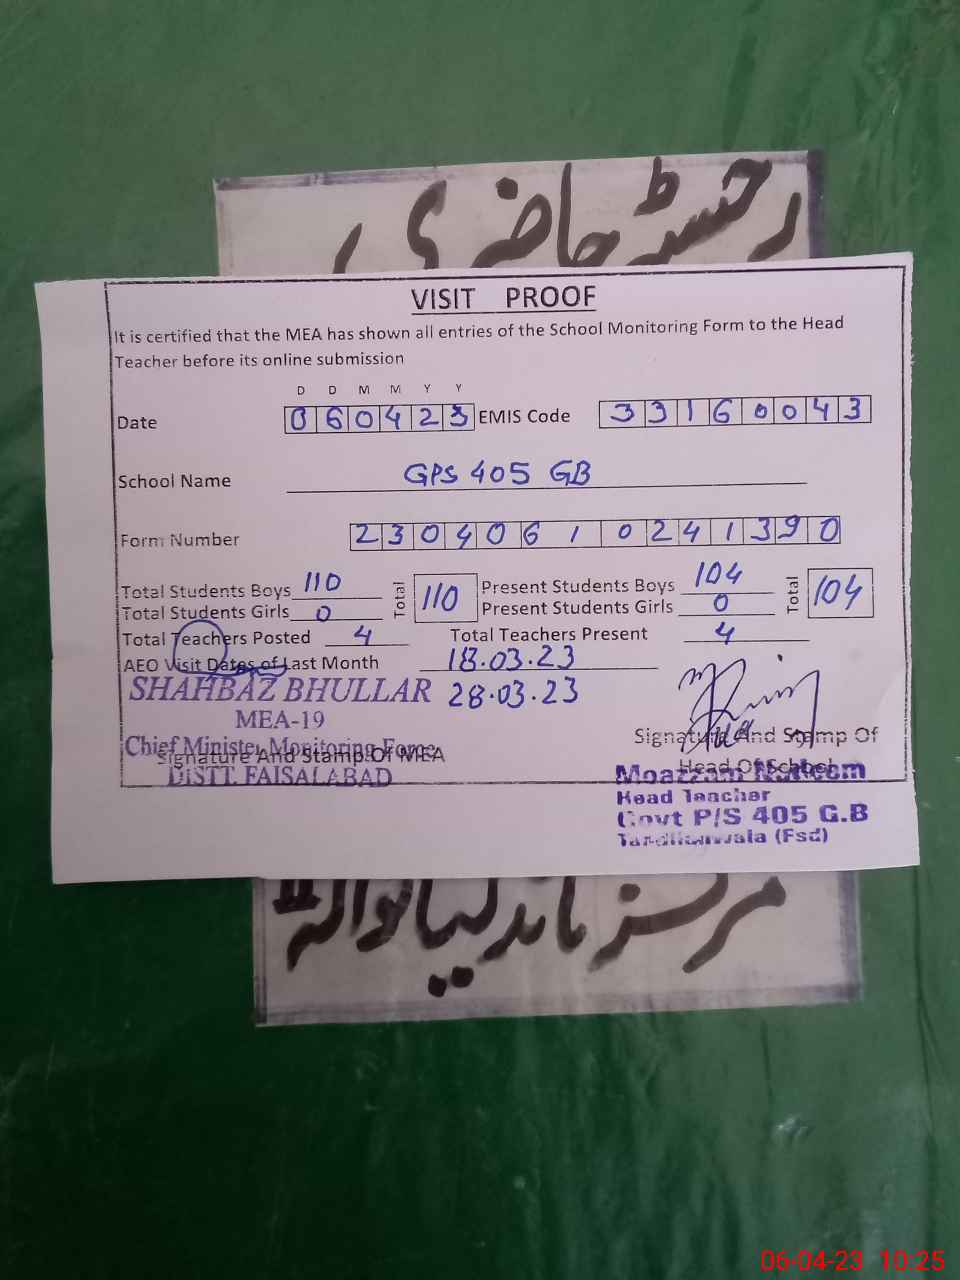 رجسٹر حاضری
VISIT PROOF
It is certified that the MEA has shown all entries of the School Monitoring Form to the Head
Teacher before its online submission
D D M M Y Y
Date 060423 EMIS Code 33160043
School Name GPS 405 GB
Form Number 23040610241390
Total Students Boys 110 Total 110 Present Students Boys 104 Total 104
Total Students Girls 0 Present Students Girls 0
Total Teachers Posted 4 Total Teachers Present 4
AEO Visit Dates of Last Month 18.03.23
SHAHBAZ BHULLAR 28.03.23
MEA-19
Chief Minister Monitoring Force
Signature And Stamp Of MEA
DISTT. FAISALABAD
Signature And Stamp Of
Head Of School
Moazzam Nadeem
Head Teacher
Govt P/S 405 G.B
Tandlianwala (Fsd)
مرکز تاندلیانوالہ
06-04-23 10:25